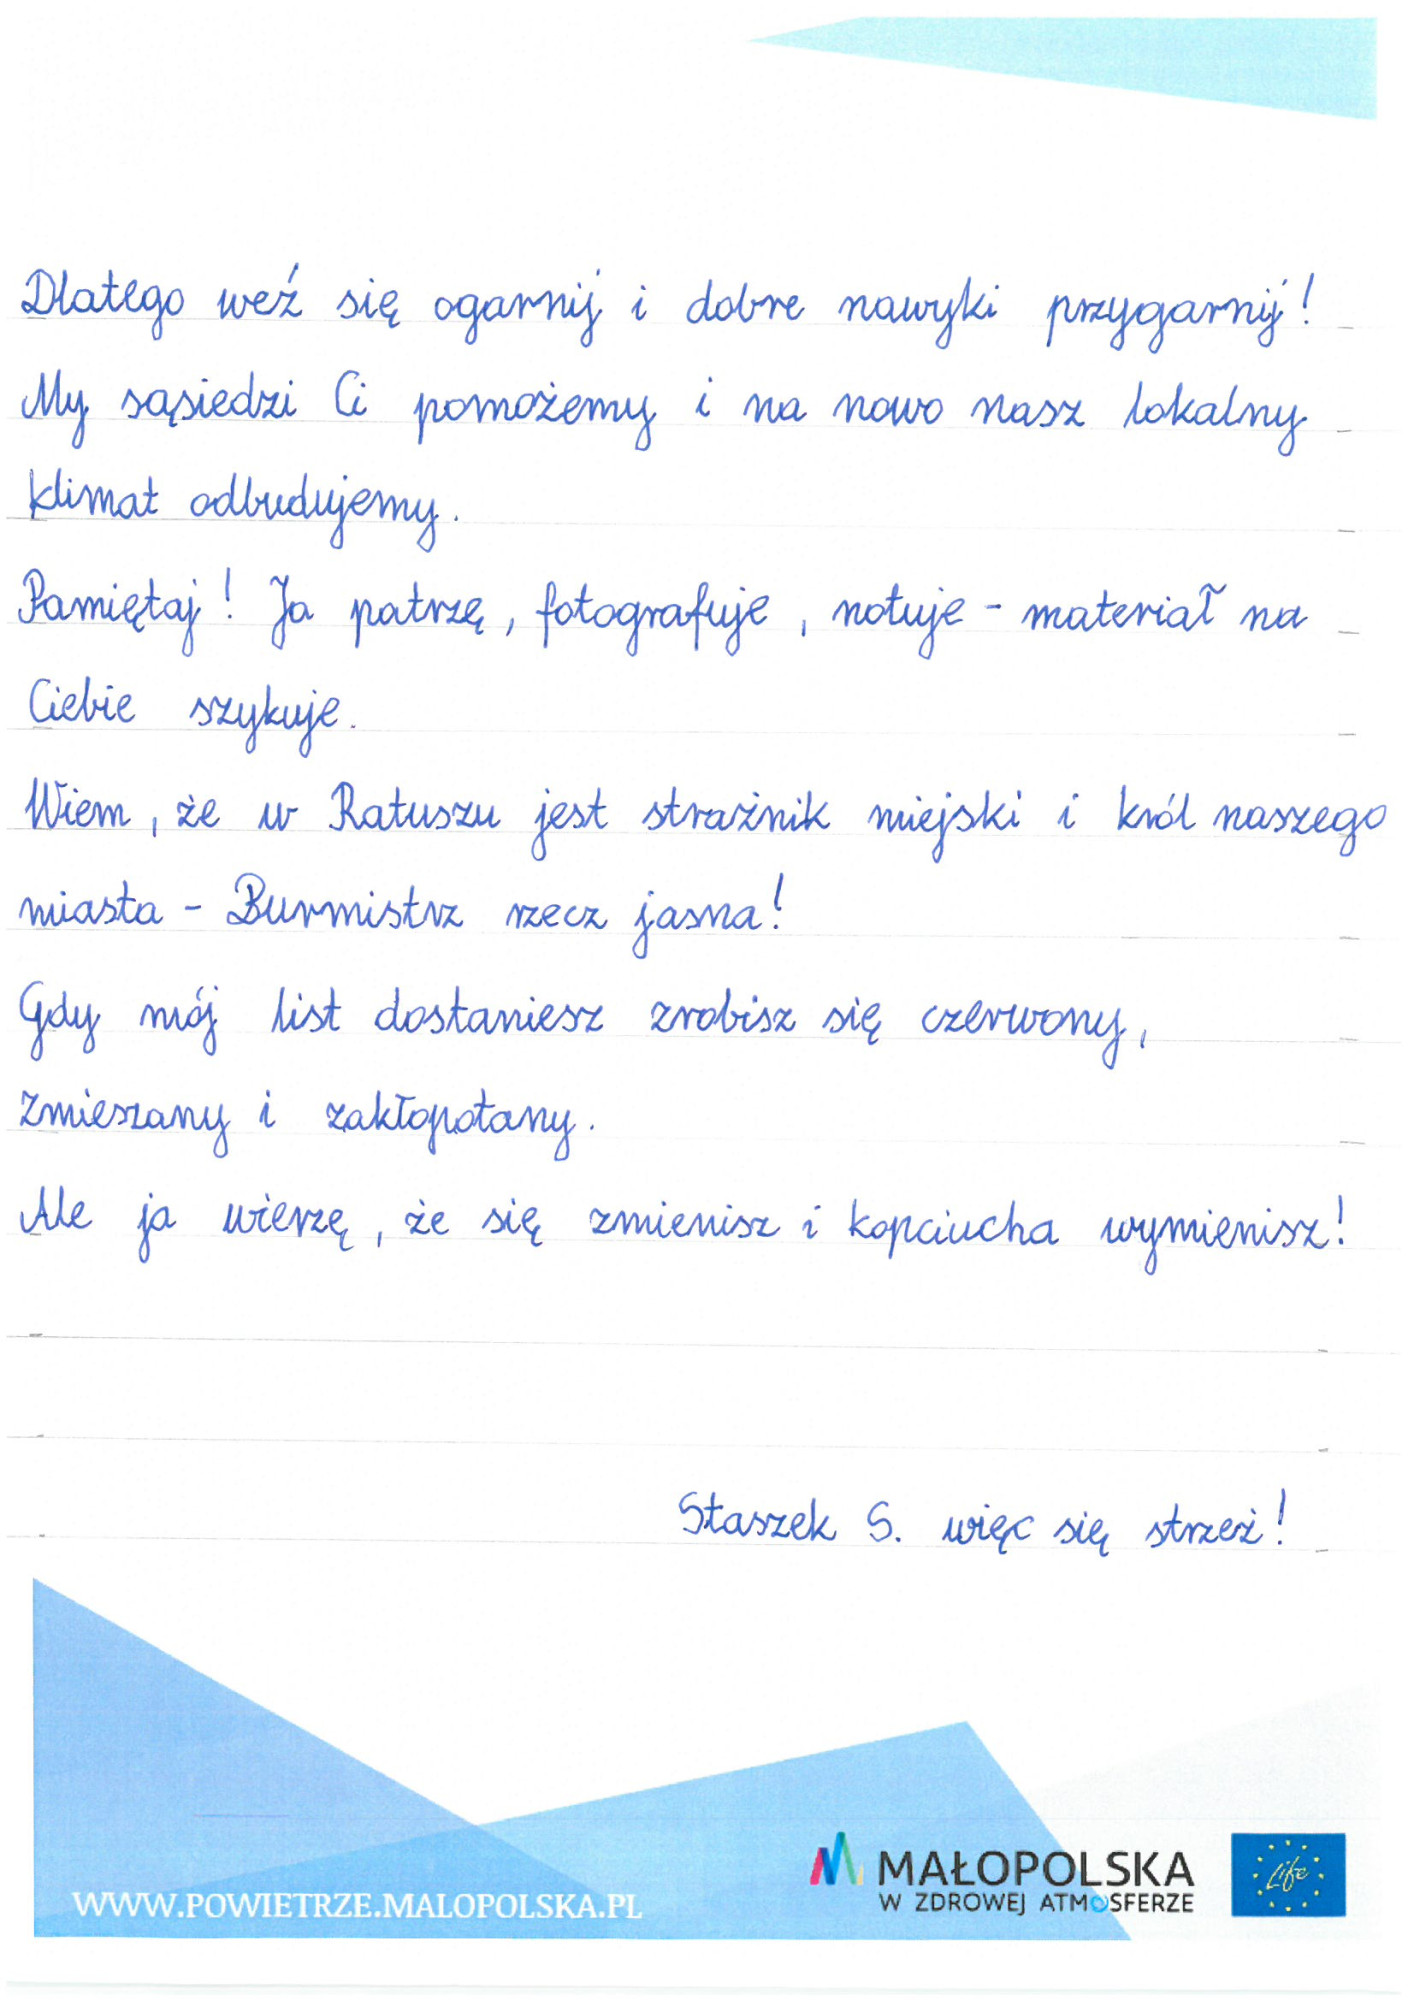 Dlatego weź się ogarnij i dobre nawyki przygarnij!
My sąsiedzi Ci pomożemy i na nowo nasz lokalny
klimat odbudujemy.
Pamiętaj! Ja patrzę, fotografuje, notuje - materiał na
Ciebie szykuje.
Wiem, że w Ratuszu jest strażnik miejski i król naszego
miasta - Burmistrz rzecz jasna!
Gdy mój list dostaniesz zrobisz się czerwony,
zmieszany i zakłopotany.
Ale ja wierzę, że się zmienisz i kopciucha wymienisz!
Staszek S. więc się strzeż!
WWW.POWIETRZE.MALOPOLSKA.PL
MAŁOPOLSKA
W ZDROWEJ ATMOSFERZE
Life